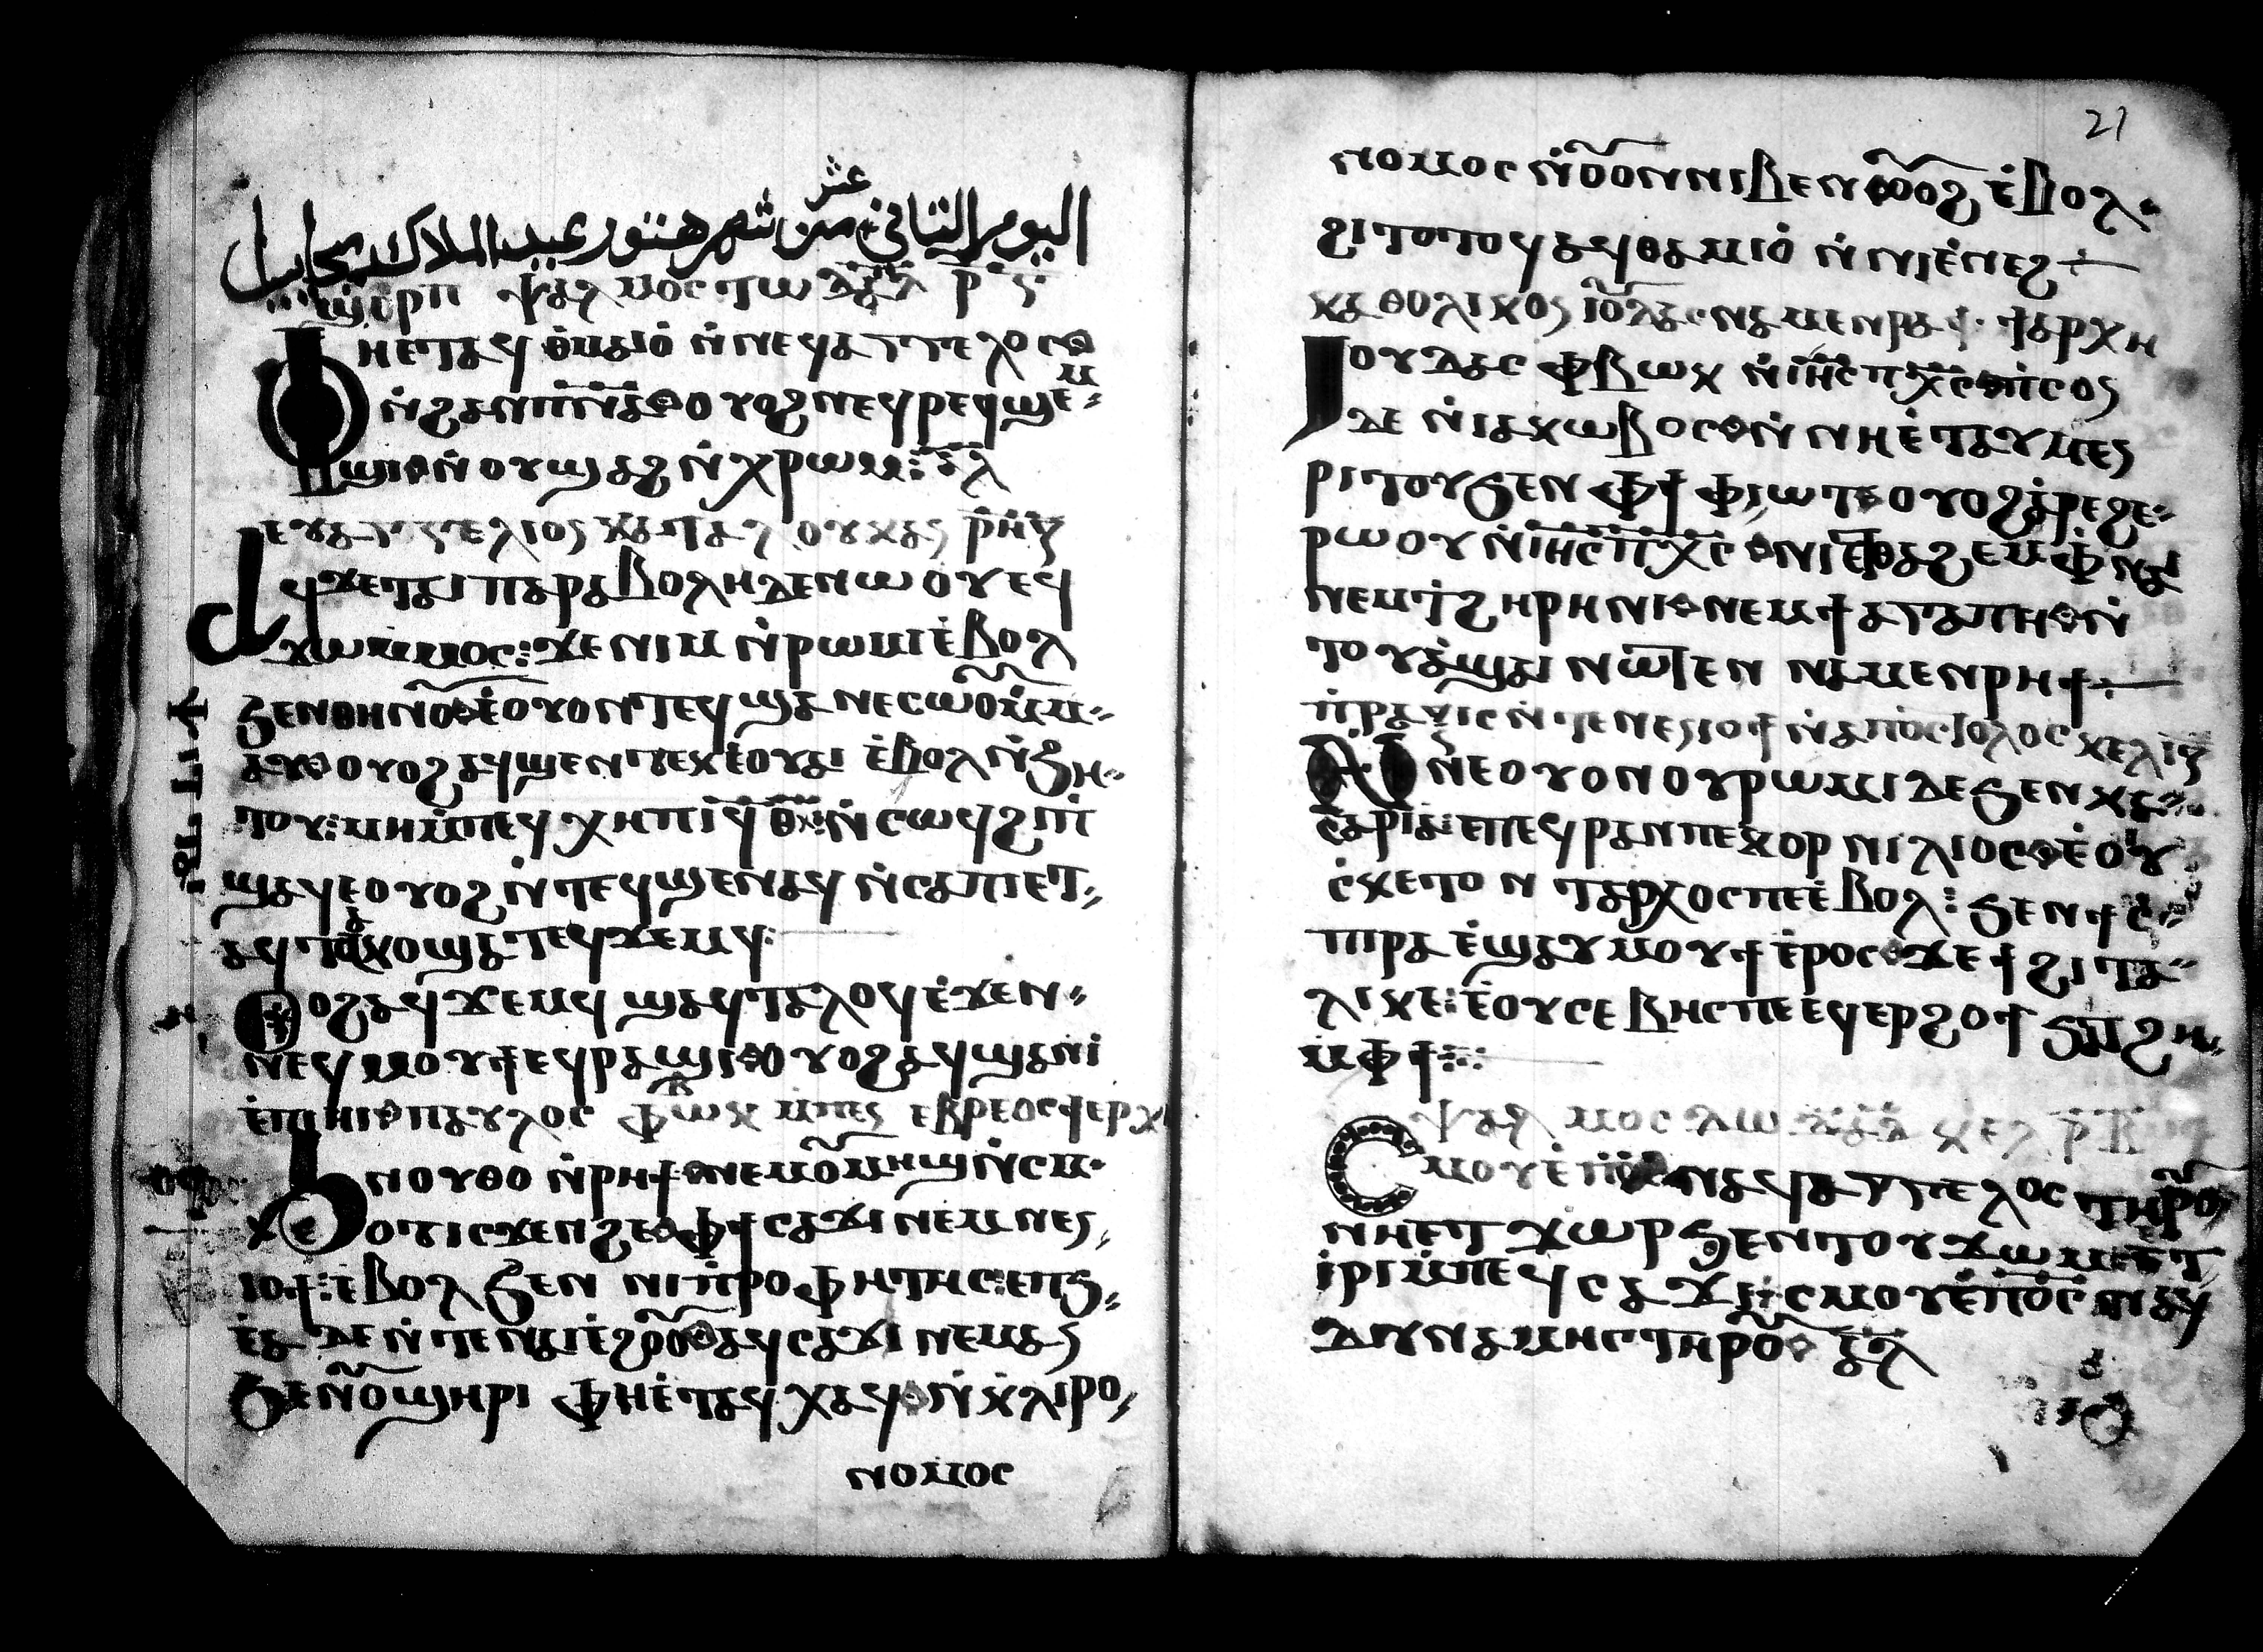 اليوم الثاني عشر من شهر هتور عيد الملاك ميخاييل
ϣⲟⲣⲡ ⲯⲁⲗⲙⲟⲥ ⲧⲱ ⲇⲁⲇ ⲣ̄ ⲋ̄
Ⲫⲏⲉⲧⲁϥ ⲑⲁⲙⲓⲟ̇ ⲛ̇ⲛⲉϥⲁⲅⲅⲉⲗⲟⲥ
ⲛ̇ϩⲁⲛⲡ̅ⲛ̅ⲁ̅ ⲟⲩⲟϩ ⲛⲉϥⲣⲉϥϣⲉⲙ
ϣⲓ ⲛ̇ⲟⲩϣⲁϩ ⲛ̇ⲭⲣⲱⲙ ⁝ ⲁ̅ⲗ̅
ⲉⲩⲁⲅⲅⲉⲗⲓⲟⲥ ⲕⲁⲧⲁⲗⲟⲩⲕⲁⲥ
Ⲁϥϫⲉⲧⲁⲓ ⲡⲁⲣⲁⲃⲟⲗⲏ ⲇⲉⲛⲱⲟⲩ ⲉϥ
ϫⲱⲙⲙⲟⲥ ⁝ ϫⲉ ⲛⲓⲙ ⲛ̇ⲣⲱⲙⲓ ⲉ̇ⲃⲟⲗ
ϧⲉⲛⲑⲏⲛⲟ̅ ⲉ̇ⲟⲩⲟⲛⲧⲉϥ ϣⲁ ⲛⲉⲥⲱⲟ̅ ⲙ̇ⲙ
ⲁⲩ ⲟⲩⲟϩ ⲁϥϣⲉⲛⲧⲉⲕⲉ̇ⲟⲩⲁⲓ ⲉ̇ⲃⲟⲗ ⲛ̇ϧⲏ
ⲧⲟⲩ ⁝ ⲙⲏ ⲙ̇ⲡⲉϥ ⲭⲏ ⲡⲓϥ̅ⲑ̅ ⲛ̇ⲥⲱϥ ϩⲓ ⲡⲓ
ϣⲁϥⲉ ⲟⲩⲟϩ ⲛ̇ⲧⲉϥϣⲉⲛⲁϥ ⲛ̇ⲥⲁⲡⲉⲧ
ⲁϥⲧⲁⲕⲟ ϣⲁⲧⲉϥϫⲉⲙϥ
Ⲟⲩⲟϩ ⲁϥϫⲉⲙϥ ϣⲁϥⲧⲁⲗⲟϥ ⲉ̇ϫⲉⲛ
ⲛⲉϥⲙⲟⲩϯ ⲉϥⲣⲁϣⲓ ⲟⲩⲟϩ ⲁϥϣⲁⲛⲓ̇
ⲉ̇ⲡⲓⲏⲓ ⲡⲁⲩⲗⲟⲥ ⲫⲃⲱⲕ ⲙⲡⲉⲥ ⲉⲃⲣⲉⲟⲥ
Ϧⲉⲛⲟⲩⲑⲟ ⲛ̇ⲣⲏϯ ⲛⲉⲙⲟ̅ⲙⲏϣ ⲛ̇ⲥⲙ
ⲟⲧ ⲓⲥϫⲉⲛϩⲉ ⲫϯ ⲥⲁϫⲓ ⲛⲉⲙ ⲛⲉⲥ
ⲓⲟϯ ⁝ ⲉ̇ⲃⲟⲗ ϧⲉⲛ ⲛⲓⲡⲣⲟⲫⲏⲧⲏⲥ ⁝ ⲉⲡϧ
ⲉ̇ⲁ ⲇⲉ ⲛ̇ⲧⲉ ⲛⲁⲓⲉ̇ϩⲟⲟ̅ⲩ ⲁϥⲥⲁϫⲓ ⲛⲉⲙⲁⲥ
ϧⲉⲛⲟ̅ϣⲏⲣⲓ ⲫⲏⲉ̇ⲧⲁϥ ⲭⲁϥ ⲛ̇ⲕⲗⲓⲣⲟ
ⲛⲟⲙⲟⲥ
21
ⲛⲟⲙⲟⲥ ⲛ̇ⲟ̅ⲟⲛ ⲛⲓⲃⲉⲛ ⲟ̅ⲟϩ ⲉ̇ⲃⲟⲗ
ϩⲓⲧⲟⲧⲟⲩ ⲁϥⲑⲁⲙⲓⲟ̇ ⲛ̇ⲛⲓⲉ̇ⲛⲉϩ
ⲕⲁⲑⲟⲗⲓⲕⲟⲥ ⲓⲟ̅ⲇⲁⲥ ⲛⲁⲙⲉⲛⲣⲁϯ ϯⲁⲣⲭⲏ
Ⲓⲟⲩⲇⲁⲥ ⲫⲃⲱⲕ ⲛ̇ⲓ̅ⲏ̅ⲥ̅ ⲡ̅ⲭ̅ⲥ̅ ⲡⲓⲥⲟⲥ
ⲇⲉ ⲛ̇ⲓⲁⲕⲱⲃⲟⲥ ⲛ̇ ⲛⲏⲉ̇ⲧⲁⲩⲙⲉⲥ
ⲣⲓⲧⲟⲩ ϧⲉⲛ ⲫϯ ⲫⲓⲱⲧ ⲟⲩⲟϩ ⲁ̇ⲣⲉϩ ⲉ
ⲣⲱⲟⲩ ⲛ̇ⲓ̅ⲏ̅ⲥ̅ ⲡ̅ⲭ̅ⲥ̅ ⲛⲓⲉⲧⲑⲁϩⲉⲙ ⲫⲛⲁⲓ
ⲛⲉⲙ ϯϩⲏⲣⲏⲛⲓ ⲛⲉⲙ ϯⲁⲅⲁⲡⲏ ⲛ̇
ⲧⲟⲩⲁ̇ϣⲁⲓ ⲛⲱⲧⲉⲛ ⲛⲁⲙⲉⲛⲣⲏϯ
ⲡⲣⲁⲝⲓⲥ ⲛ̇ⲧⲉⲛⲉⲥⲓⲟϯ ⲛ̇ⲁⲡⲟⲥⲧⲟⲗⲟⲥ
ⲛⲉ ⲟⲩⲟⲛ ⲟⲩⲣⲱⲙⲓ ⲇⲉ ϧⲉⲛ ⲕⲁ
ⲥⲁⲣⲓⲁ ⲉⲡⲉϥⲣⲁⲛⲡⲉ ⲕⲟⲣⲛⲓⲗⲓⲟⲥ ⲉ̇ⲟⲩ
ⲥ̇ⲕⲉⲧⲟⲛⲧⲁⲣⲭⲟⲥⲡⲉ ⲉ̇ⲃⲟⲗ ⁝ ϧⲉⲛ ϯⲥ̇
ⲡⲣⲁ ⲉ̇ϣⲁⲩⲙⲟⲩϯ ⲉ̇ⲣⲟⲥ ϫⲉ ϯϩⲓⲧⲁ
ⲗⲓⲕⲉ ⁝ ⲉ̇ⲟⲩⲥⲉⲃⲏⲥⲡⲉ ⲉϥⲉⲣϩⲟϯ ϧⲁⲧϩⲏ
ⲙⲫϯ ⁝
ⲯⲁⲗⲙⲟⲥ ⲗⲱ ⲇⲁⲇ ⲕⲉⲗ ⲣ̅ⲃ̅
Ⲥⲙⲟⲩ ⲉ̇ⲡ̅ⲟ̅ⲥ̅ ⲛⲉϥⲁⲅⲅⲉⲗⲟⲥ ⲧⲏⲣⲟ̅
ⲛⲏⲉⲧ ϫⲱⲣ ϧⲉⲛ ⲧⲟⲩϫⲱⲙ ⲉ̇ⲧ
ⲓ̇ⲣⲓ ⲙ̇ⲡⲉϥⲥⲁϫⲓ ⁝ ⲥⲙⲟⲩ ⲉ̇ⲡ̅ⲟ̅ⲥ̅ ⲛⲉϥ
ⲇⲩⲛⲁⲙⲏⲥ ⲧⲏⲣⲟ̅ ⲁ̅ⲗ̅